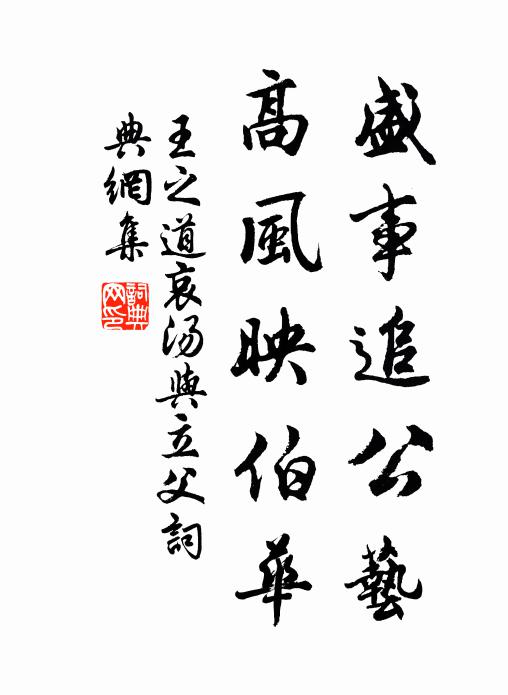 盛事追公藝
高風映伯華
王之道哀湯與立父詞
典網集
詞典網印